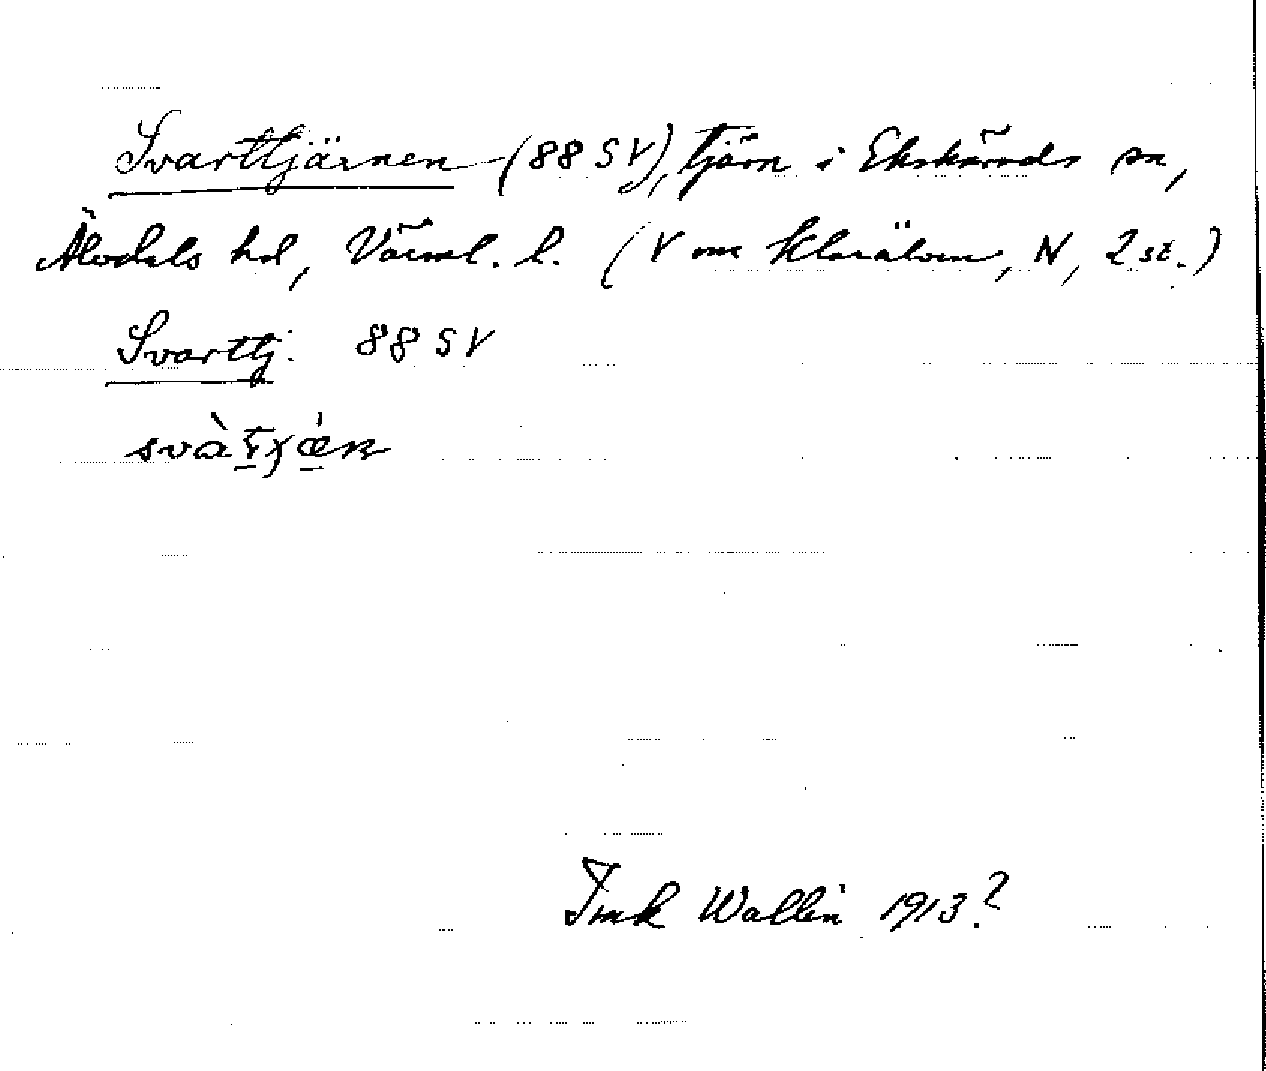 Svarttjärnen (88 SV), tjärn i Ekshärads sn,
Älvdals hd, Värml. l. (V om Klarälven, N, 2 st.)
Svarttj. 88 SV
Wallin 1913?